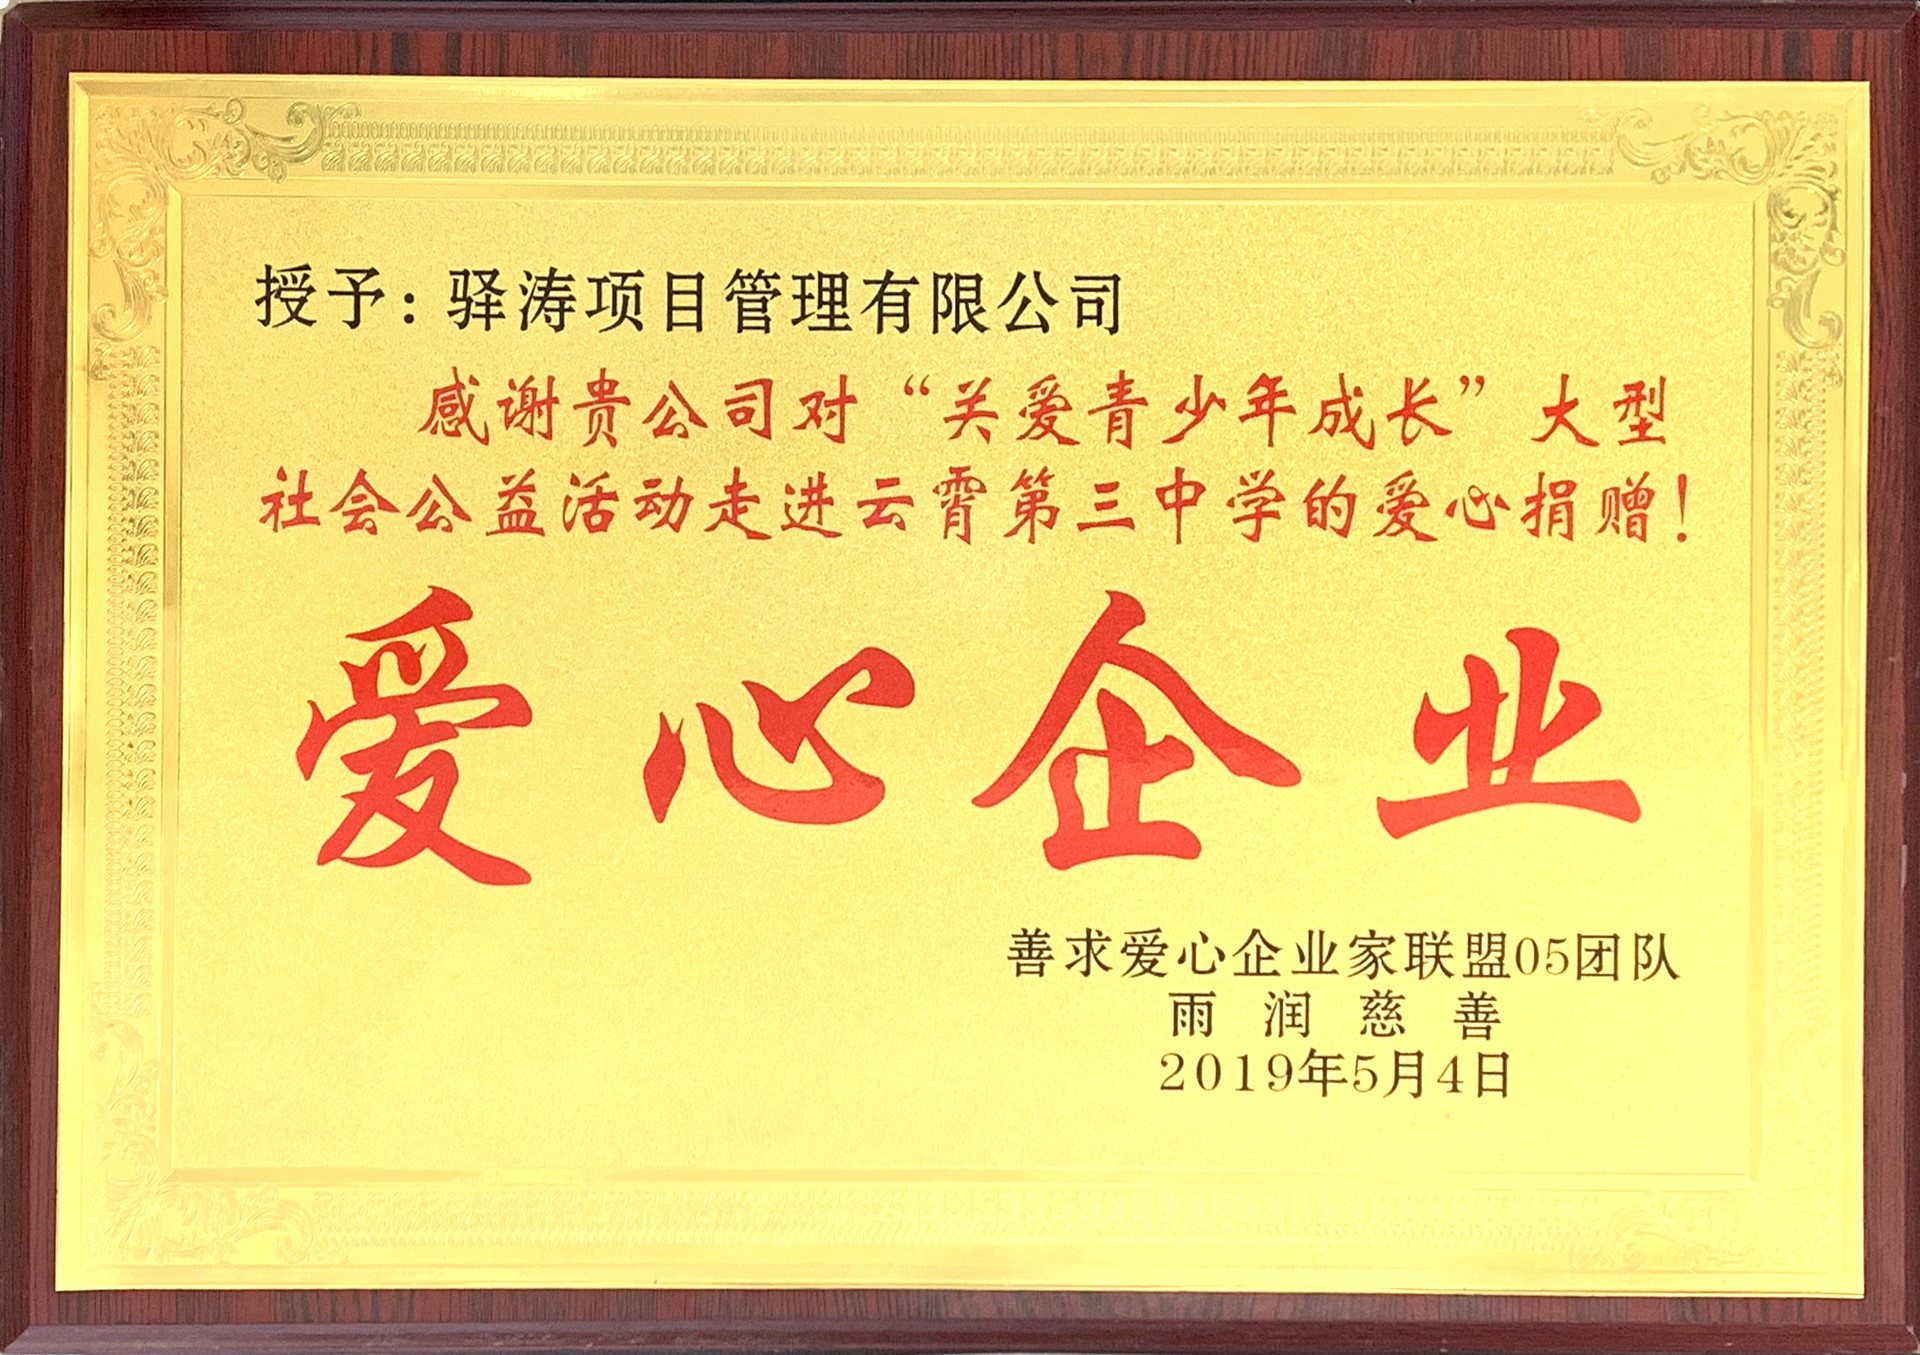 授予：驿涛项目管理有限公司
感谢贵公司对“关爱青少年成长”大型
社会公益活动走进云霄第三中学的爱心捐赠！
爱心企业
善求爱心企业家联盟05团队
雨润慈善
2019年5月4日